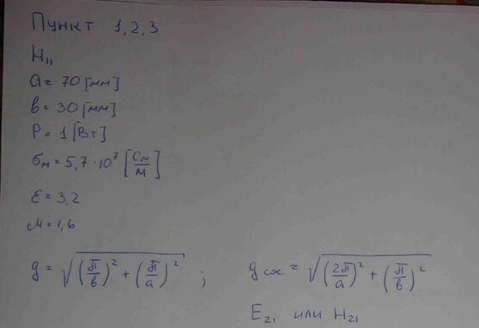 Пункт 1, 2, 3
H₁₁
a = 70 [мм]
в = 30 [мм]
P = 1 [Вт]
σм = 5,7 · 10⁷ [См/м]
ε = 3,2
μ = 1,6
g = √((π/в)² + (π/a)²) ; gсж = √((2π/a)² + (π/в)²)
E₂₁ или H₂₁